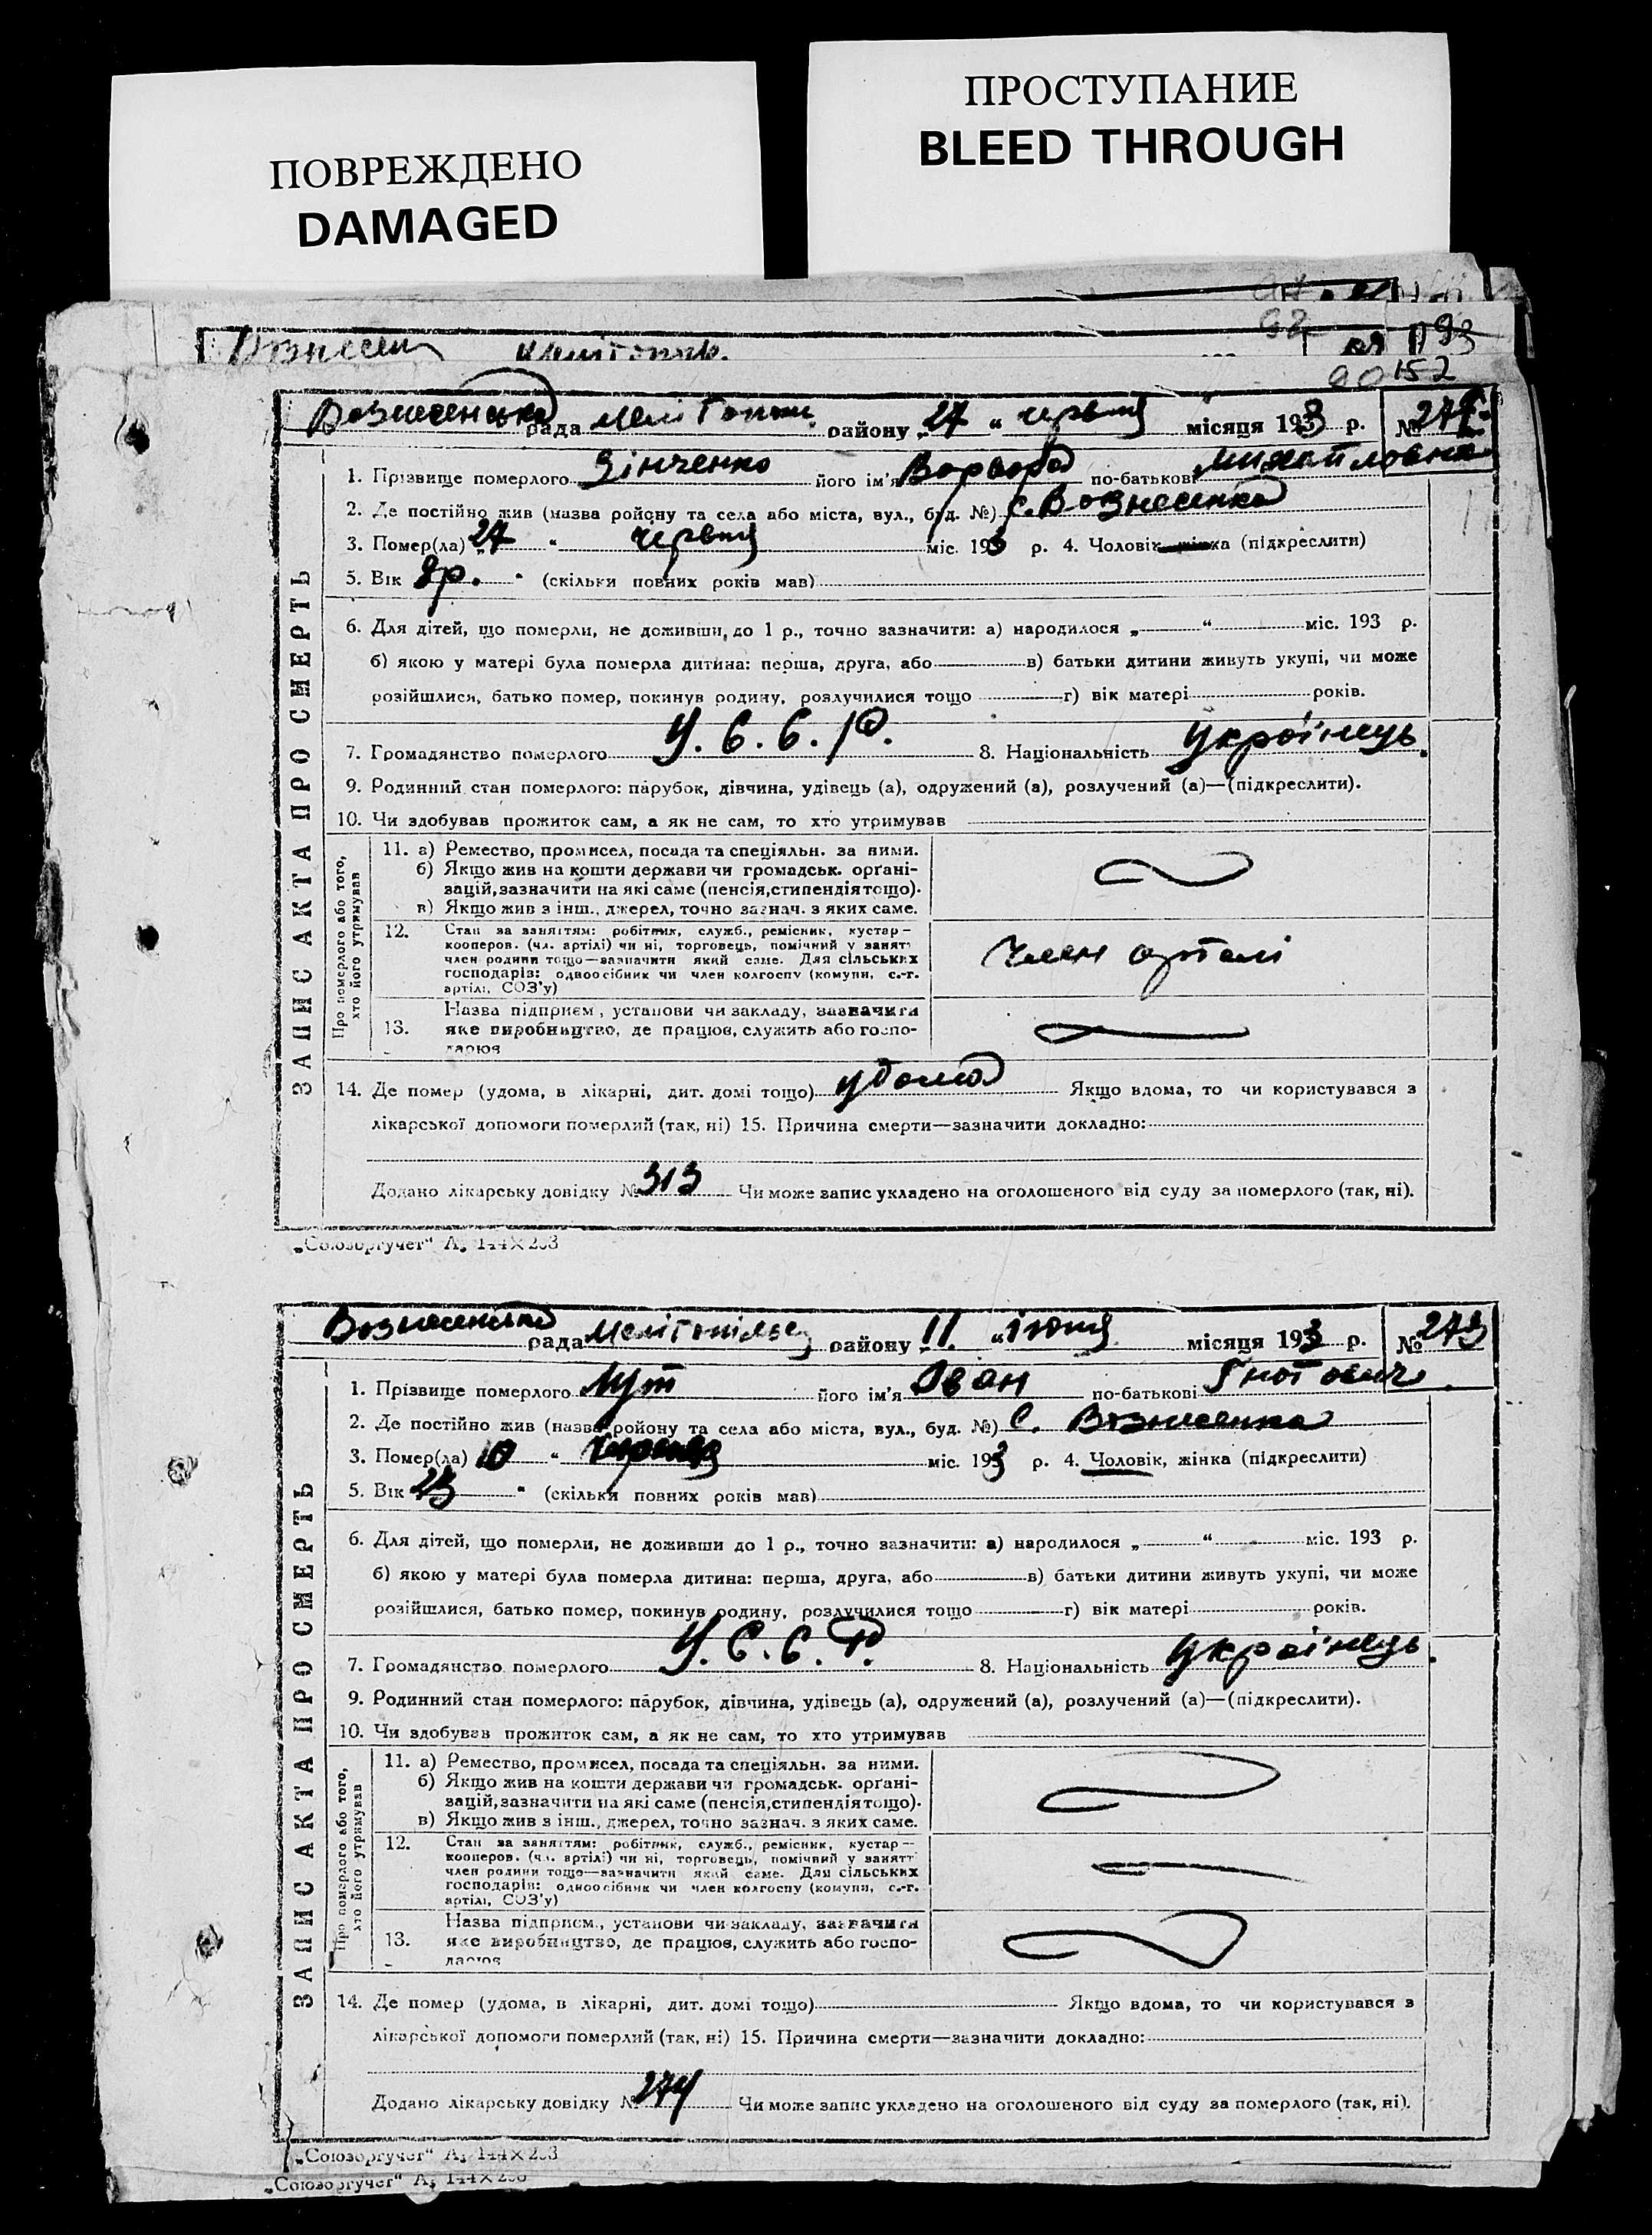 ПОВРЕЖДЕНО
DAMAGED
ПРОСТУПАНИЕ
BLEED THROUGH
98
93
90 152
Вознесенська рада Мелітопол. району „27“ червня місяця 1933 р. №
1. Прізвище померлого Зінченко його ім'я Варвара по-батькові Михайловна
2. Де постійно жив (назва району та села або міста, вул., буд. №) с. Вознесенка
3. Помер(ла) „27“ червня міс. 193 р. 4. Чоловік, жінка (підкреслити)
5. Вік „ “ (скільки повних років мав)
6. Для дітей, що померли, не доживши до 1 р., точно зазначити: а) народилося „ “ міс. 193 р.
б) якою у матері була померла дитина: перша, друга, або в) батьки дитини живуть укупі, чи може
розійшлися, батько помер, покинув родину, розлучилися тощо г) вік матері років.
7. Громадянство померлого У.С.С.Р. 8. Національність українець.
9. Родинний стан померлого: парубок, дівчина, удівець (а), одружений (а), розлучений (а)—(підкреслити).
10. Чи здобував прожиток сам, а як не сам, то хто утримував
ЗАПИС АКТА ПРО СМЕРТЬ
Про померлого або того, хто його утримував
11. а) Ремество, промисел, посада та спеціяльн. за ними.
б) Якщо жив на кошти держави чи громадськ. орґані-
зацій, зазначити на які саме (пенсія, стипендія тощо).
в) Якщо жив з інш., джерел, точно зазнач. з яких саме.
12. Стан за заняттям: робітник, служб., ремісник, кустар—
кооперов. (чл. артілі) чи ні, торговець, помічний у занятт
член родини тощо—зазначити який саме. Для сільських
господарів: одноосібник чи член колгоспу (комуни, с.-г.
артілі, СОЗ'у)
Член артелі
13. Назва підприєм., установи чи закладу, зазначити
яке виробництво, де працює, служить або госпо-
дарює
14. Де помер (удома, в лікарні, дит. домі тощо) удома Якщо вдома, то чи користувався з
лікарської допомоги померлий (так, ні) 15. Причина смерти—зазначити докладно:
Додано лікарську довідку № 313 Чи може запис укладено на оголошеного від суду за померлого (так, ні).
„Союзоргучет“ А₅ 144×203
Вознесенська рада Мелітопільск району „11“ іюня місяця 1933 р. № 273
1. Прізвище померлого Мут його ім'я Іван по-батькові Гнотович
2. Де постійно жив (назва району та села або міста, вул., буд. №) с. Вознесенка
3. Помер(ла) „10“ червня міс. 1933 р. 4. Чоловік, жінка (підкреслити)
5. Вік „23“ (скільки повних років мав)
6. Для дітей, що померли, не доживши до 1 р., точно зазначити: а) народилося „ “ міс. 193 р.
б) якою у матері була померла дитина: перша, друга, або в) батьки дитини живуть укупі, чи може
розійшлися, батько помер, покинув родину, розлучилися тощо г) вік матері років.
7. Громадянство померлого У.С.С.Р. 8. Національність українець.
9. Родинний стан померлого: парубок, дівчина, удівець (а), одружений (а), розлучений (а)—(підкреслити).
10. Чи здобував прожиток сам, а як не сам, то хто утримував
ЗАПИС АКТА ПРО СМЕРТЬ
Про померлого або того, хто його утримував
11. а) Ремество, промисел, посада та спеціяльн. за ними.
б) Якщо жив на кошти держави чи громадськ. орґані-
зацій, зазначити на які саме (пенсія, стипендія тощо).
в) Якщо жив з інш., джерел, точно зазнач. з яких саме.
12. Стан за заняттям: робітник, служб., ремісник, кустар—
кооперов. (чл. артілі) чи ні, торговець, помічний у занятт
член родини тощо—зазначити який саме. Для сільських
господарів: одноосібник чи член колгоспу (комуни, с.-г.
артілі, СОЗ'у)
13. Назва підприєм., установи чи закладу, зазначити
яке виробництво, де працює, служить або госпо-
дарює
14. Де помер (удома, в лікарні, дит. домі тощо) Якщо вдома, то чи користувався з
лікарської допомоги померлий (так, ні) 15. Причина смерти—зазначити докладно:
Додано лікарську довідку № 274 Чи може запис укладено на оголошеного від суду за померлого (так, ні).
„Союзоргучет“ А₅ 144×203
„Союзоргучет“ А₅ 144×203